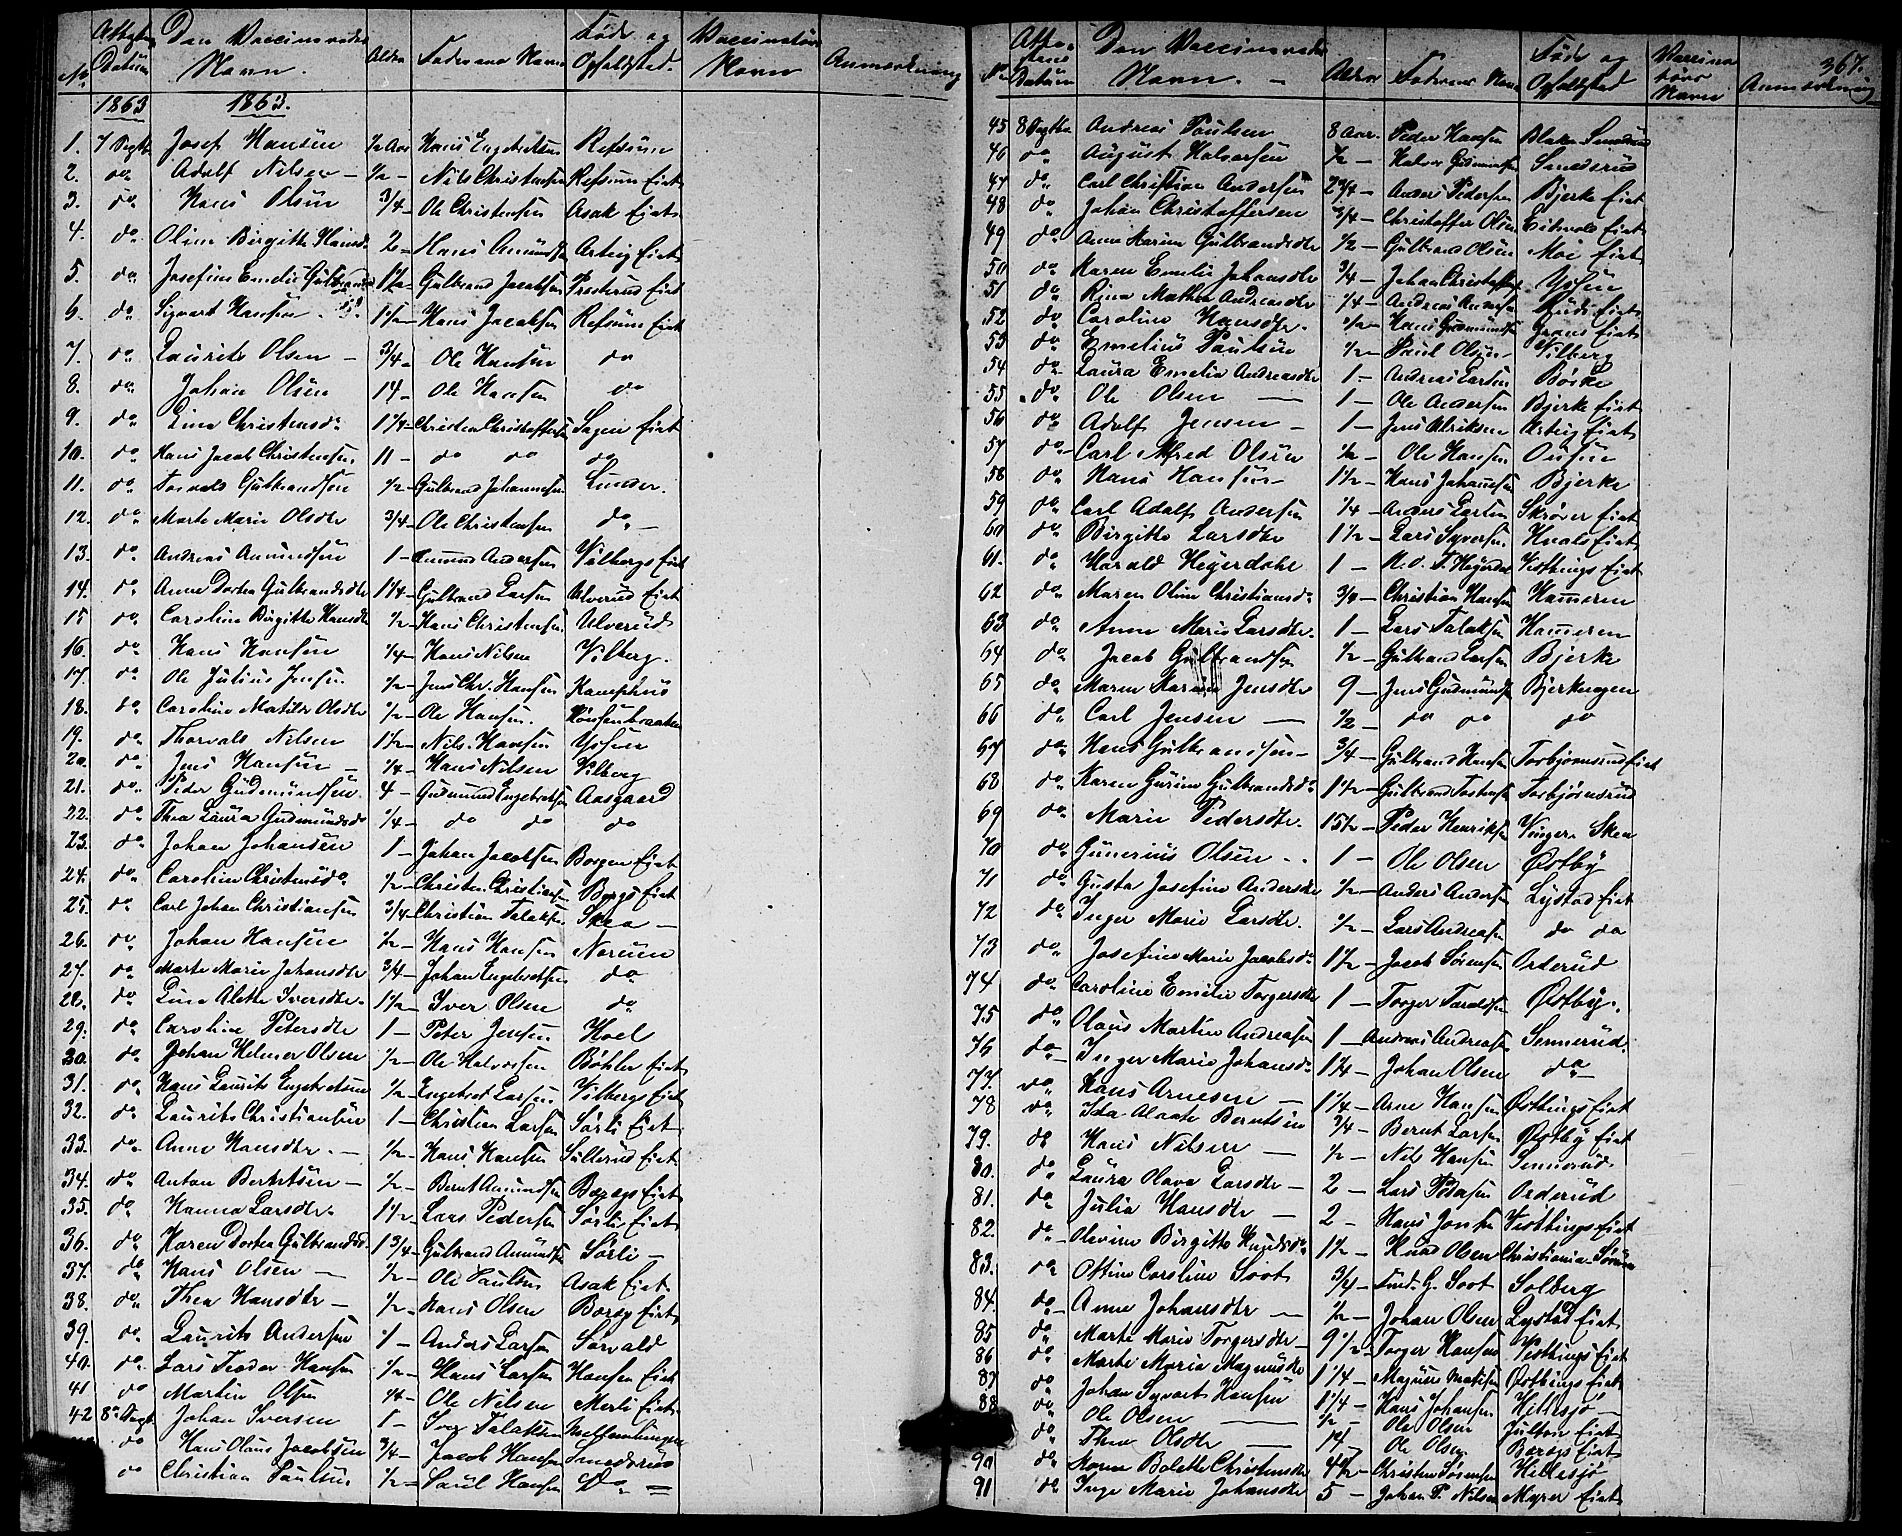 Attestens Datum Den Vaccineredes Navn. Alder Faderens Navn Føde og Opholdsted. Vaccinatørs Navn Anmærkning
1863 1863.
1. 7 Septbr Josef Hansen 1/2 Aar Hans Engebretsen Refsum
2. do Adolf Nilsen – 1/2 – Nils Christensen Refsum Eiet
3. do Hans Olsen 3/4 – Ole Christensen Asak Eiet
4. do Oline Birgitte Hansd. 2 – Hans Amundsen Arteig Eiet
5. do Josefine Emelie Gulbrandsd. 1 1/2 – Gulbrand Jacobsen Præsterud Eiet
6. do Sigvart Hansen 1 1/2 – Hans Jacobsen Refsum Eiet
7. do Laurits Olsen – 3/4 – Ole Hansen do
8. do Johan Olsen 14 – Ole Hansen do
9. do Lina Christensd. 1 1/4 – Christen Christoffersen Sagen Eiet
10. do Hans Jacob Christensen 11 – do do do
11. do Torvald Gulbrandsen 1/2 – Gulbrand Johannesen Linder.
12. do Marte Marie Olsdtr 3/4 – Ole Christensen do –
13. do Andreas Amundsen 1 – Amund Andersen Vilbergs Eiet
14. do Anne Dortea Gulbrandsdtr 1 1/4 – Gulbrand Larsen Ulverud Eiet
15 do Caroline Birgitte Hansdtr 1/2 – Hans Christensen Ulverud
16. do Hans Hansen 1/4 – Hans Nilsen Vilberg.
17. do Ole Julius Jensen 1/2 – Jens Chr. Hansen Kamphus
18. do Caroline Matilde Olsdtr 1/2 – Ole Hansen.
19. do Thorvald Nilsen 1 1/2 – Nils Hansen Ysen
20. do Jens Hansen – 1/4 – Hans Nilsen Vilberg
21. do Peder Gudmundsen 4 – Gudmund Engebretsen Aasgaard
22. do Thea Laura Gudmundsd. 1/4 – do do do
23. do Johan Johansen 1 – Johan Jacobsen Borgen Eiet
24. do Caroline Christensd. 1/2 – Christen Christiansen Borgs Eiet
25. do Carl Johan Christiansen 3/4 Christian Talaksen Skea –
26. do Johan Hansen 1/2 – Hans Hansen Norum
27. do Marte Marie Johansdtr 3/4 – Johan Engebretsen do
28. do Lina Alette Iversdtr. 1 1/2 – Iver Olsen do
29. do Caroline Petersdtr 1 – Peter Jensen Hoel
30. do Johan Helmer Olsen 1/2 – Ole Halvorsen Bøhler Eiet
31. do Hans Laurits Engebretsen 1/2 – Engebret Larsen Vilbergs Eiet
32. do Laurits Christiansen 1 – Christian Larsen Sørli Eiet
33. do Anne Hansdtr. – 1/2 – Hans Hansen Sullerud Eiet
34. do Anton Berntsen – 1/2 – Bernt Amundsen Borgs Eiet
35. do Hanna Larsdtr. 1 1/2 – Lars Pedersen Sørli Eiet
36. do Karen Dortea Gulbrandsd. 1 3/4 – Gulbrand Amundsen Sørli –
37. do Hans Olsen – 1/2 – Ole Paulsen Asak Eiet
38. do Thea Hansdtr – 1/2 – Hans Olsen Borgs Eiet
39. do Laurits Andersen 1 – Anders Larsen Sørvald
40. do Lars Teodor Hansen 1/2 – Hans Larsen Hansen Eiet
41 do Martin Olsen Ole Nilsen Merli Eiet
42 8 Septbr Johan Iversen 1 – Iver Talaksen
do Hans Olaus Jacobsen 3/4 – Jacob Hansen Smedsrud
do Christian Paulsen 1/2 – Paul Hansen Do –
367.
Attestens Datum Den Vaccineredes Navn. – Alder Faderens Navn Føde og Opholdsted Vaccinatørs Navn Anmærkning
45 8 Septbr Andreas Paulsen 8 Aar. Peder Hansen Blaker Smedsrud
46 do August Halvorsen 1/2 – Halvor Gudmundsen Smedsrud
47 do Carl Christian Andersen 2 3/4 – Anders Pedersen Bjerke Eiet
48 do Johan Christoffersen 3/4 – Christoffer Olsen Eidsvold Eiet
49 do Anne Karine Gulbrandsdtr 1/2 – Gulbrand Olsen Moe Eiet
50 do Karen Emelie Johansdtr 3/4 – Johan Christoffersen Ysen
51 do Rina Mathea Andreasdtr 1/4 – Andreas Eiet
52 do Caroline Hansdtr. 1/2 – Hans Gudmundsen Eiet
53 do Emelius Paulsen 1/2 – Paul Olsen Vilberg
54 do Laura Emelie Andreasdtr 1 – Andreas Larsen Børke
55 do Ole Olsen – 1 – Ole Andersen Bjerke Eiet
56 do Adolf Jensen – 1 – Jens Ulriksen Arteig Eiet
57 do Carl Alfred Olsen 1/2 – Ole Hansen Ousen
58 do Hans Hansen – 1 1/2 – Hans Johansen Bjerke
59 do Carl Adolf Andersen 1/4 – Anders Larsen Skrøver Eiet
60 do Birgitte Larsdtr 1 1/2 – Lars Syversen Hvals Eiet
61. do Harald Hegerdahl 1 – Vestbings Eiet
62 do Maren Oline Christiansd. 3/4 – Christian Hansen Hameren
63 do Anne Marie Larsdtr. 1 – Lars Talaksen Hameren
64 do Jacob Gulbrandsen 1/2 – Gulbrand Larsen Bjerke
65 do Maren Karine Jensdtr 9 – Jens Gudmundsen Bjerkhagen
66 do Carl Jensen – 1/2 – do do do
67 do Hans Gulbrandsen – 3/4 – Gulbrand Hansen Torbjørnsrud Eiet
68 do Karen Gurine Gulbrandsd. 1 1/2 – Gulbrand Torstensen Torbjørnsrud
69 do Marie Pedersdtr. 15 1/2 – Peder Henriksen Vinger Skea
70 do Gunerius Olsen – . 1 – Ole Olsen Østby
71 do Gusta Josefine Andersdtr 1/2 – Anders Andersen Lystad Eiet
72 do Inger Marie Larsdtr. 1/2 – Lars Andreasen do do
73 do Josefine Marie Jacobsd. 1 1/2 – Jacob Sørensen Orderud
74 do Caroline Emilie Torgersdtr 1 – Torger Taraldsen Østby.
75 do Olaus Martin Andreasen 1 – Andreas Andreasen Sennerud.
76 do Inger Marie Johansd. 1 1/4 – Johan Olsen do –
77. do Hans Arnesen – 1 1/4 – Arne Hansen Østbings Eiet
78 do Ida Alaate Berntsen 3/4 – Bernt Larsen Østby Eiet
79. do Hans Nilsen – 1/2 – Nils Hansen Sennerud
80. do Laura Olava Larsdtr – 2 – Lars Pedersen Orderud
81. do Julia Hansdtr – 2 – Hans Jonsen Vestbings Eiet
82. do Olevine Birgitte Knudsd. 1 1/2 – Knud Olsen Christiania Sørum
83. do Ottine Caroline Soot 3/4 – Fred. G. Soot Solberg
84. do Anne Johansdtr – 1/2 – Johan Olsen Lystad Eiet
85 do Marte Marie Torgersdtr – 9 1/2 – Torger Hansen Vestbings Eiet
86 do Marte Maria Magnusdtr 1 1/4 – Magnus Matisen Østbings Eiet
87 do Johan Syvart Hansen 1 1/4 – Hans Johansen Hellesjø –
88 do Ole Olsen – 1/2 – Ole Olsen Julton Eiet
do Thea Olsdtr – 14 Ole Olsen Borgs Eiet
90 do Karen Bolette Christensdtr 4 1/2 – Christen Sørensen Hellesjø
91 do Inge Marie Johansdtr 5 – Johan P. Nilsen Myrer Eiet